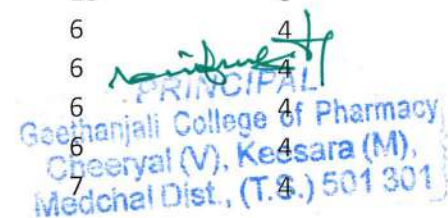 6 4
6 4
PRINCIPAL
6 4
Geethanjali College of Pharmacy
6 4
Cheeryal (V), Keesara (M),
7 4
Medchal Dist., (T.S.) 501 301